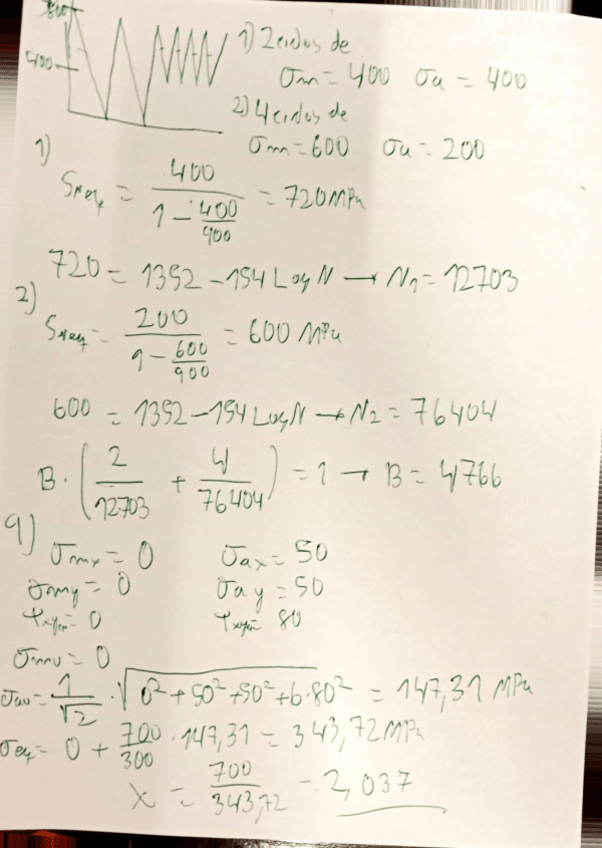 800
400
1) 2 ciclos de
σm = 400 σa = 400
2) 4 ciclos de
σm = 600 σa = 200
1)
SNeq = 400 / (1 - 400/900) = 720 MPa
720 = 1392 - 154 Log N → N1 = 12703
2)
SNeq = 200 / (1 - 600/900) = 600 MPa
600 = 1392 - 154 Log N → N2 = 76404
B · (2/12703 + 4/76404) = 1 → B = 4766
9)
σmx = 0 σax = 50
σmy = 0 σay = 50
τxym = 0 τxya = 80
σmv = 0
σav = 1/√2 · √(0² + 50² + 50² + 6·80²) = 147,31 MPa
σeq = 0 + 700/300 · 147,31 = 343,72 MPa
X = 700/343,72 = 2,037